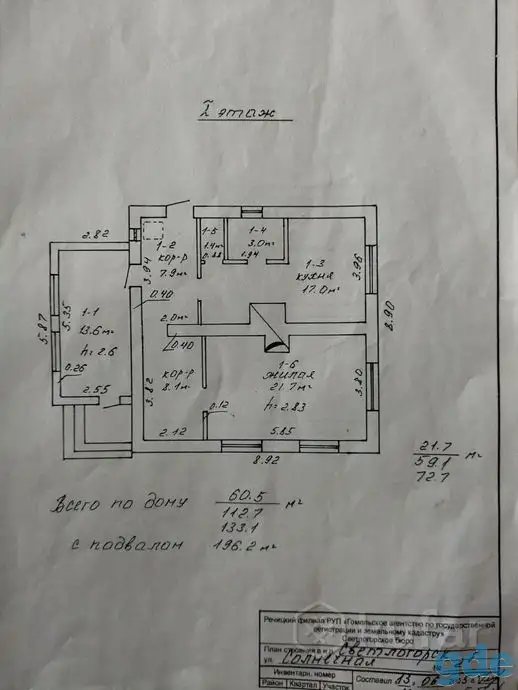 I этаж
2.82
1-2
кор-р
7.9м²
3.94
1-5
1.4м²
0.88
1-4
3.0м²
1.94
1-3
кухня
17.0м²
3.96
8.90
5.87
5.35
1-1
13.6м²
h=2.6
0.26
2.55
0.40
2.0м²
0.40
кор-р
8.1м²
3.82
2.12
0.12
1-6
жилая
21.7м²
h=2.83
5.85
3.80
8.92
21.7
59.1 м²
72.7
Всего по дому 60.5 м²
112.7
133.1
с подвалом 196.2 м²
Речицкий филиал РУП «Гомельское агентство по государственной
регистрации и земельному кадастру»
Светлогорское бюро
План строения в н.р. Светлогорск
ул. Солнечная
Инвентарн. номер
Район Квартал Участок
Составил 13.06
gde